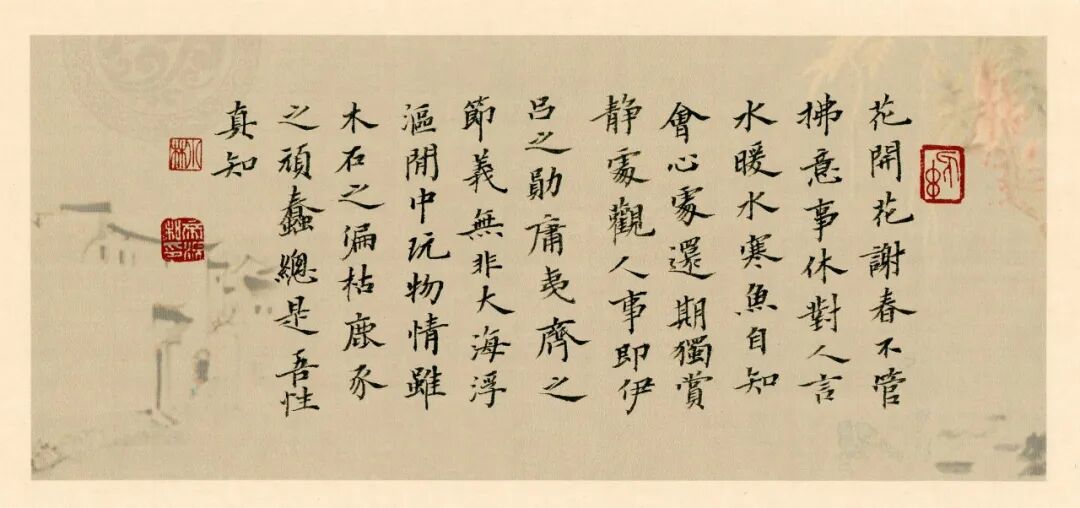 花開花謝春不管
拂意事休對人言
水暖水寒魚自知
會心處還期獨賞
静處觀人事即伊
吕之勛庸夷齊之
節義無非大海浮
漚閒中玩物情雖
木石之偏枯鹿豕
之頑蠢總是吾性
真知